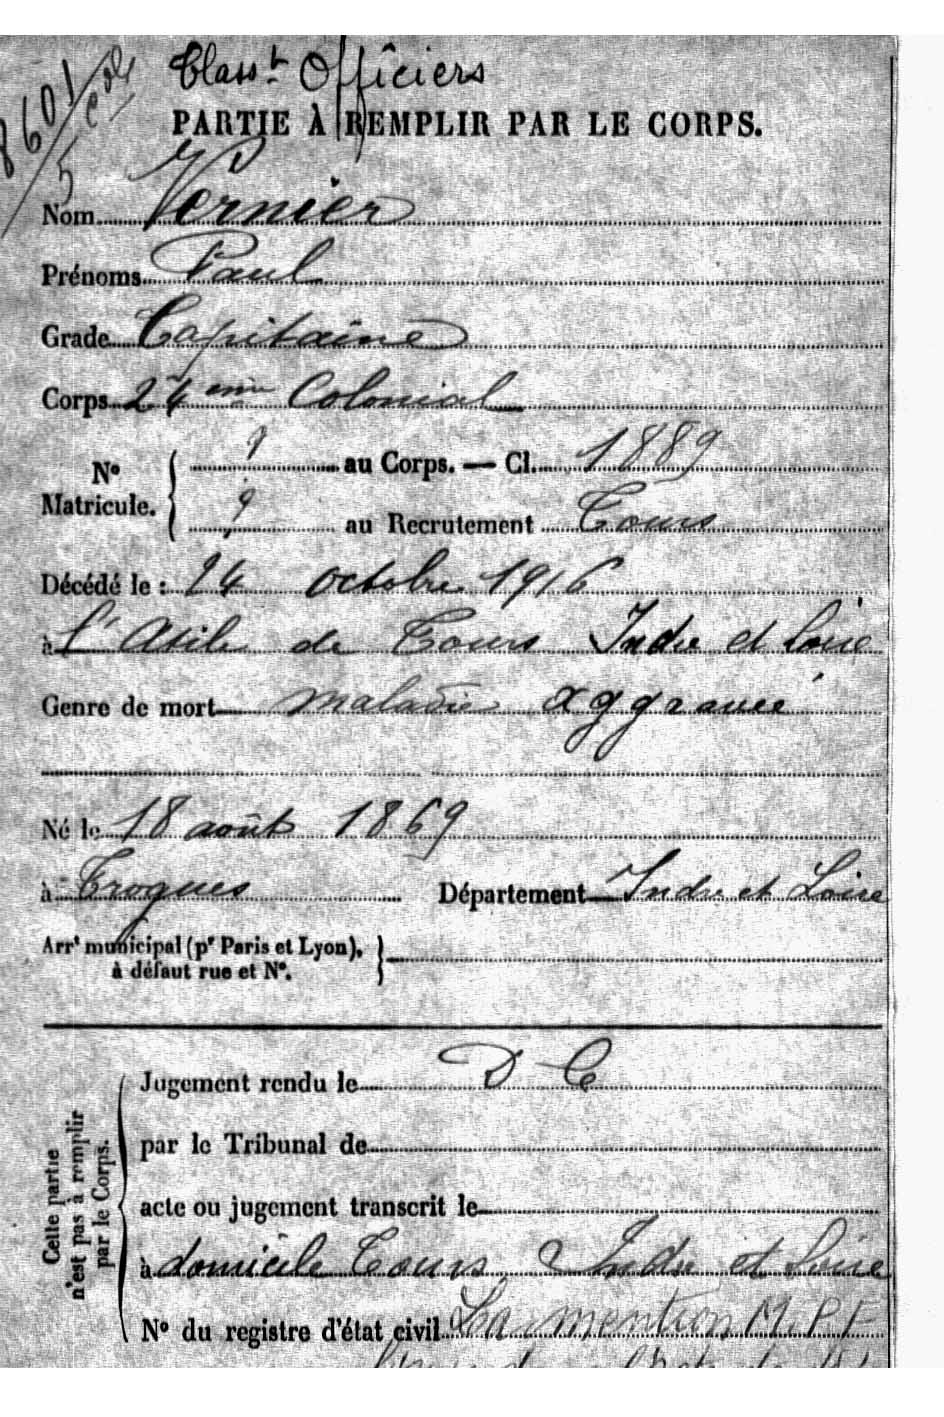 Class.t Officiers
8601
5 cole
PARTIE À REMPLIR PAR LE CORPS.
Nom Vernier
Prénoms Paul
Grade Capitaine
Corps 24 ème Colonial
N° Matricule. { ? au Corps. — Cl. 1889
? au Recrutement Tours
Décédé le : 24 octobre 1916
à l'Asile de Tours Indre et Loire
Genre de mort maladie aggravée
Né le 18 août 1869
à Trogues Département Indre et Loire
Arrt municipal (pr Paris et Lyon), à défaut rue et N°. }
Cette partie n'est pas à remplir par le Corps.
Jugement rendu le D C
par le Tribunal de
acte ou jugement transcrit le
à domicile Tours Indre et Loire
N° du registre d'état civil La mention M.P.F